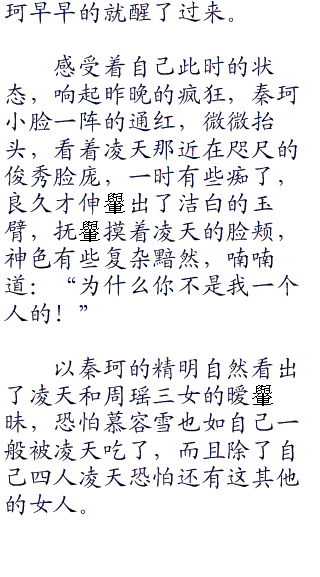 珂早早的就醒了过来。
感受着自己此时的状
态，响起昨晚的疯狂，秦珂
小脸一阵的通红，微微抬
头，看着凌天那近在咫尺的
俊秀脸庞，一时有些痴了，
良久才伸出了洁白的玉
臂，抚摸着凌天的脸颊，
神色有些复杂黯然，喃喃
道：“为什么你不是我一个
人的！”
以秦珂的精明自然看出
了凌天和周瑶三女的暧
昧，恐怕慕容雪也如自己一
般被凌天吃了，而且除了自
己四人凌天恐怕还有这其他
的女人。